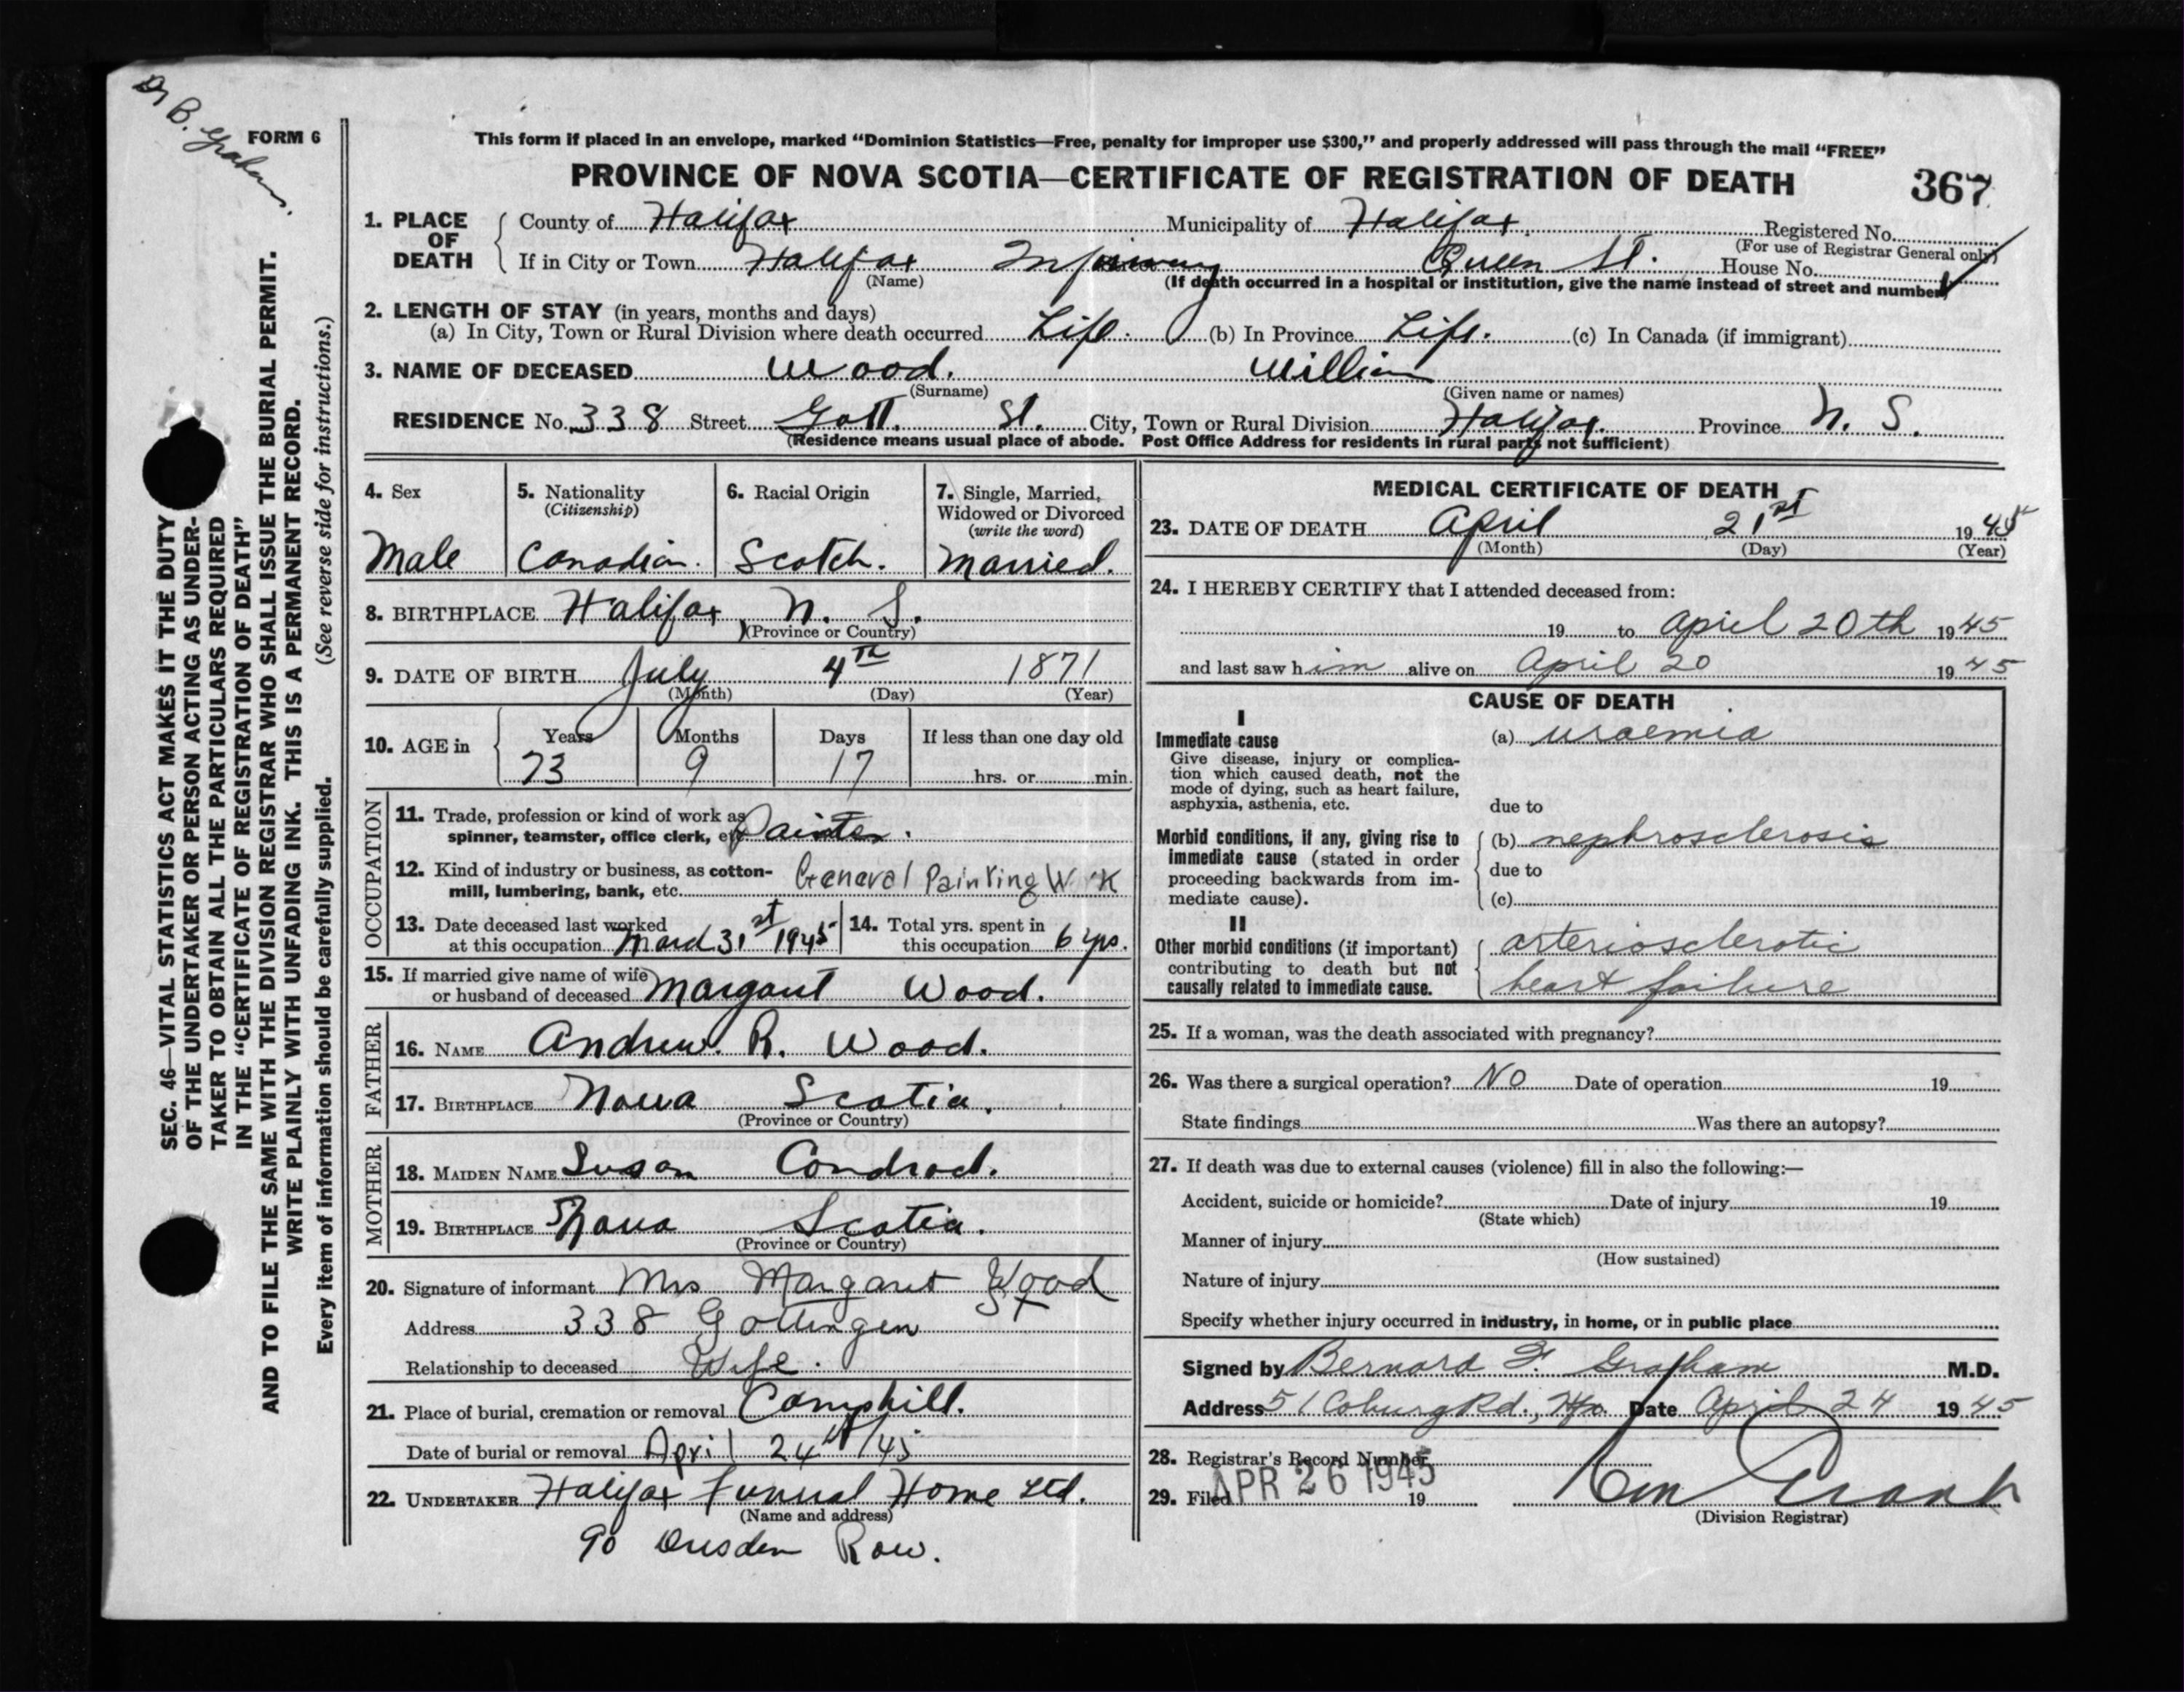 Dr B. Graham.
FORM 6
This form if placed in an envelope, marked “Dominion Statistics—Free, penalty for improper use $300,” and properly addressed will pass through the mail “FREE”
PROVINCE OF NOVA SCOTIA—CERTIFICATE OF REGISTRATION OF DEATH 367
1. PLACE OF DEATH County of Halifax Municipality of Halifax. Registered No.
(For use of Registrar General only)
If in City or Town Halifax Infirmary Queen St. House No.
(Name) (If death occurred in a hospital or institution, give the name instead of street and number)
2. LENGTH OF STAY (in years, months and days)
(a) In City, Town or Rural Division where death occurred Life. (b) In Province Life. (c) In Canada (if immigrant)
3. NAME OF DECEASED Wood. William
(Surname) (Given name or names)
RESIDENCE No. 338 Street Gott. St. City, Town or Rural Division Halifax. Province N. S.
(Residence means usual place of abode. Post Office Address for residents in rural parts not sufficient)
4. Sex
Male
5. Nationality
(Citizenship)
Canadian.
6. Racial Origin
Scotch.
7. Single, Married,
Widowed or Divorced
(write the word)
Married.
8. BIRTHPLACE Halifax, N. S.
(Province or Country)
9. DATE OF BIRTH July 4th 1871
(Month) (Day) (Year)
10. AGE in Years Months Days If less than one day old
73 9 17 hrs. or min.
OCCUPATION
11. Trade, profession or kind of work as
spinner, teamster, office clerk, etc. Painter.
12. Kind of industry or business, as cotton-
mill, lumbering, bank, etc. General Painting Work
13. Date deceased last worked
at this occupation March 31st 1945
14. Total yrs. spent in
this occupation 6 yrs.
15. If married give name of wife
or husband of deceased Margaret Wood.
FATHER
16. NAME Andrew. R. Wood.
17. BIRTHPLACE Nova Scotia.
(Province or Country)
MOTHER
18. MAIDEN NAME Susan Condrad.
19. BIRTHPLACE Nova Scotia.
(Province or Country)
20. Signature of informant Mrs Margaret Wood
Address 338 Gottingen St
Relationship to deceased Wife.
21. Place of burial, cremation or removal Camphill.
Date of burial or removal April 24th/45
22. UNDERTAKER Halifax Funeral Home Ltd.
(Name and address)
90 Dresden Row.
MEDICAL CERTIFICATE OF DEATH
23. DATE OF DEATH April 21st 1945
(Month) (Day) (Year)
24. I HEREBY CERTIFY that I attended deceased from:
19 to April 20th 1945
and last saw him alive on April 20 1945
CAUSE OF DEATH
I
Immediate cause (a) uraemia
Give disease, injury or complica-
tion which caused death, not the
mode of dying, such as heart failure,
asphyxia, asthenia, etc. due to
Morbid conditions, if any, giving rise to (b) nephrosclerosis
immediate cause (stated in order
proceeding backwards from im- due to
mediate cause). (c)
II
Other morbid conditions (if important) arteriosclerotic
contributing to death but not
causally related to immediate cause. heart failure
25. If a woman, was the death associated with pregnancy?
26. Was there a surgical operation? No Date of operation 19
State findings Was there an autopsy?
27. If death was due to external causes (violence) fill in also the following:—
Accident, suicide or homicide? Date of injury 19
(State which)
Manner of injury
(How sustained)
Nature of injury
Specify whether injury occurred in industry, in home, or in public place
Signed by Bernard F. Graham M.D.
Address 51 Coburg Rd., Hfx Date April 24 1945
28. Registrar's Record Number
29. Filed APR 26 1945 19
(Division Registrar)
SEC. 46—VITAL STATISTICS ACT MAKES IT THE DUTY
OF THE UNDERTAKER OR PERSON ACTING AS UNDER-
TAKER TO OBTAIN ALL THE PARTICULARS REQUIRED
IN THE “CERTIFICATE OF REGISTRATION OF DEATH”
AND TO FILE THE SAME WITH THE DIVISION REGISTRAR WHO SHALL ISSUE THE BURIAL PERMIT.
WRITE PLAINLY WITH UNFADING INK. THIS IS A PERMANENT RECORD.
Every item of information should be carefully supplied. (See reverse side for instructions.)